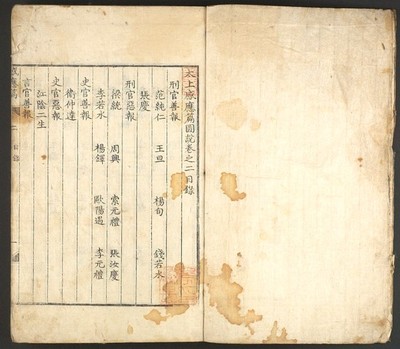 太上感應篇圖說卷之二目錄
刑官善報
范純仁 王旦 楊旬 錢若水
張慶
刑官惡報
梁統 周興 索元禮 張汝慶
李若水 楊鐸 歐陽遇 李元禮
史官善報
衛仲達
史官惡報
江陰二生
言官善報